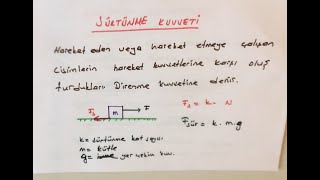 SÜRTÜNME KUVVETİ
Hareket eden veya hareket etmeye çalışan
Cisimlerin hareket kuvvetlerine karşı oluş
turdukları Direnme kuvvetine denir.
Fs m F
Fs = k. N
Fsür = k. m. g
k = sürtünme kat sayısı
m = kütle
g = yer çekim kuv.